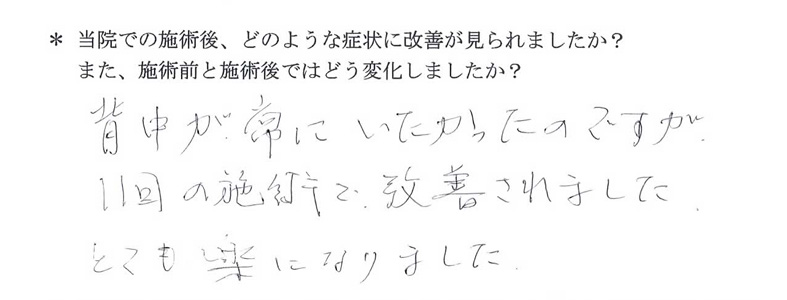 * 当院での施術後、どのような症状に改善が見られましたか？
また、施術前と施術後ではどう変化しましたか？
背中が常にいたかったのですが、
11回の施術で、改善されました.
とても楽になりました.